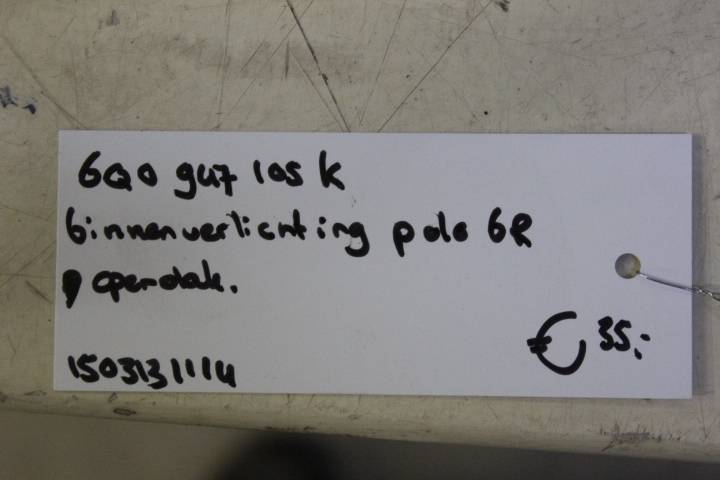 6Q0 947 105 K
binnenverlichting polo 6R
opendak.
€ 35,-
1503131114